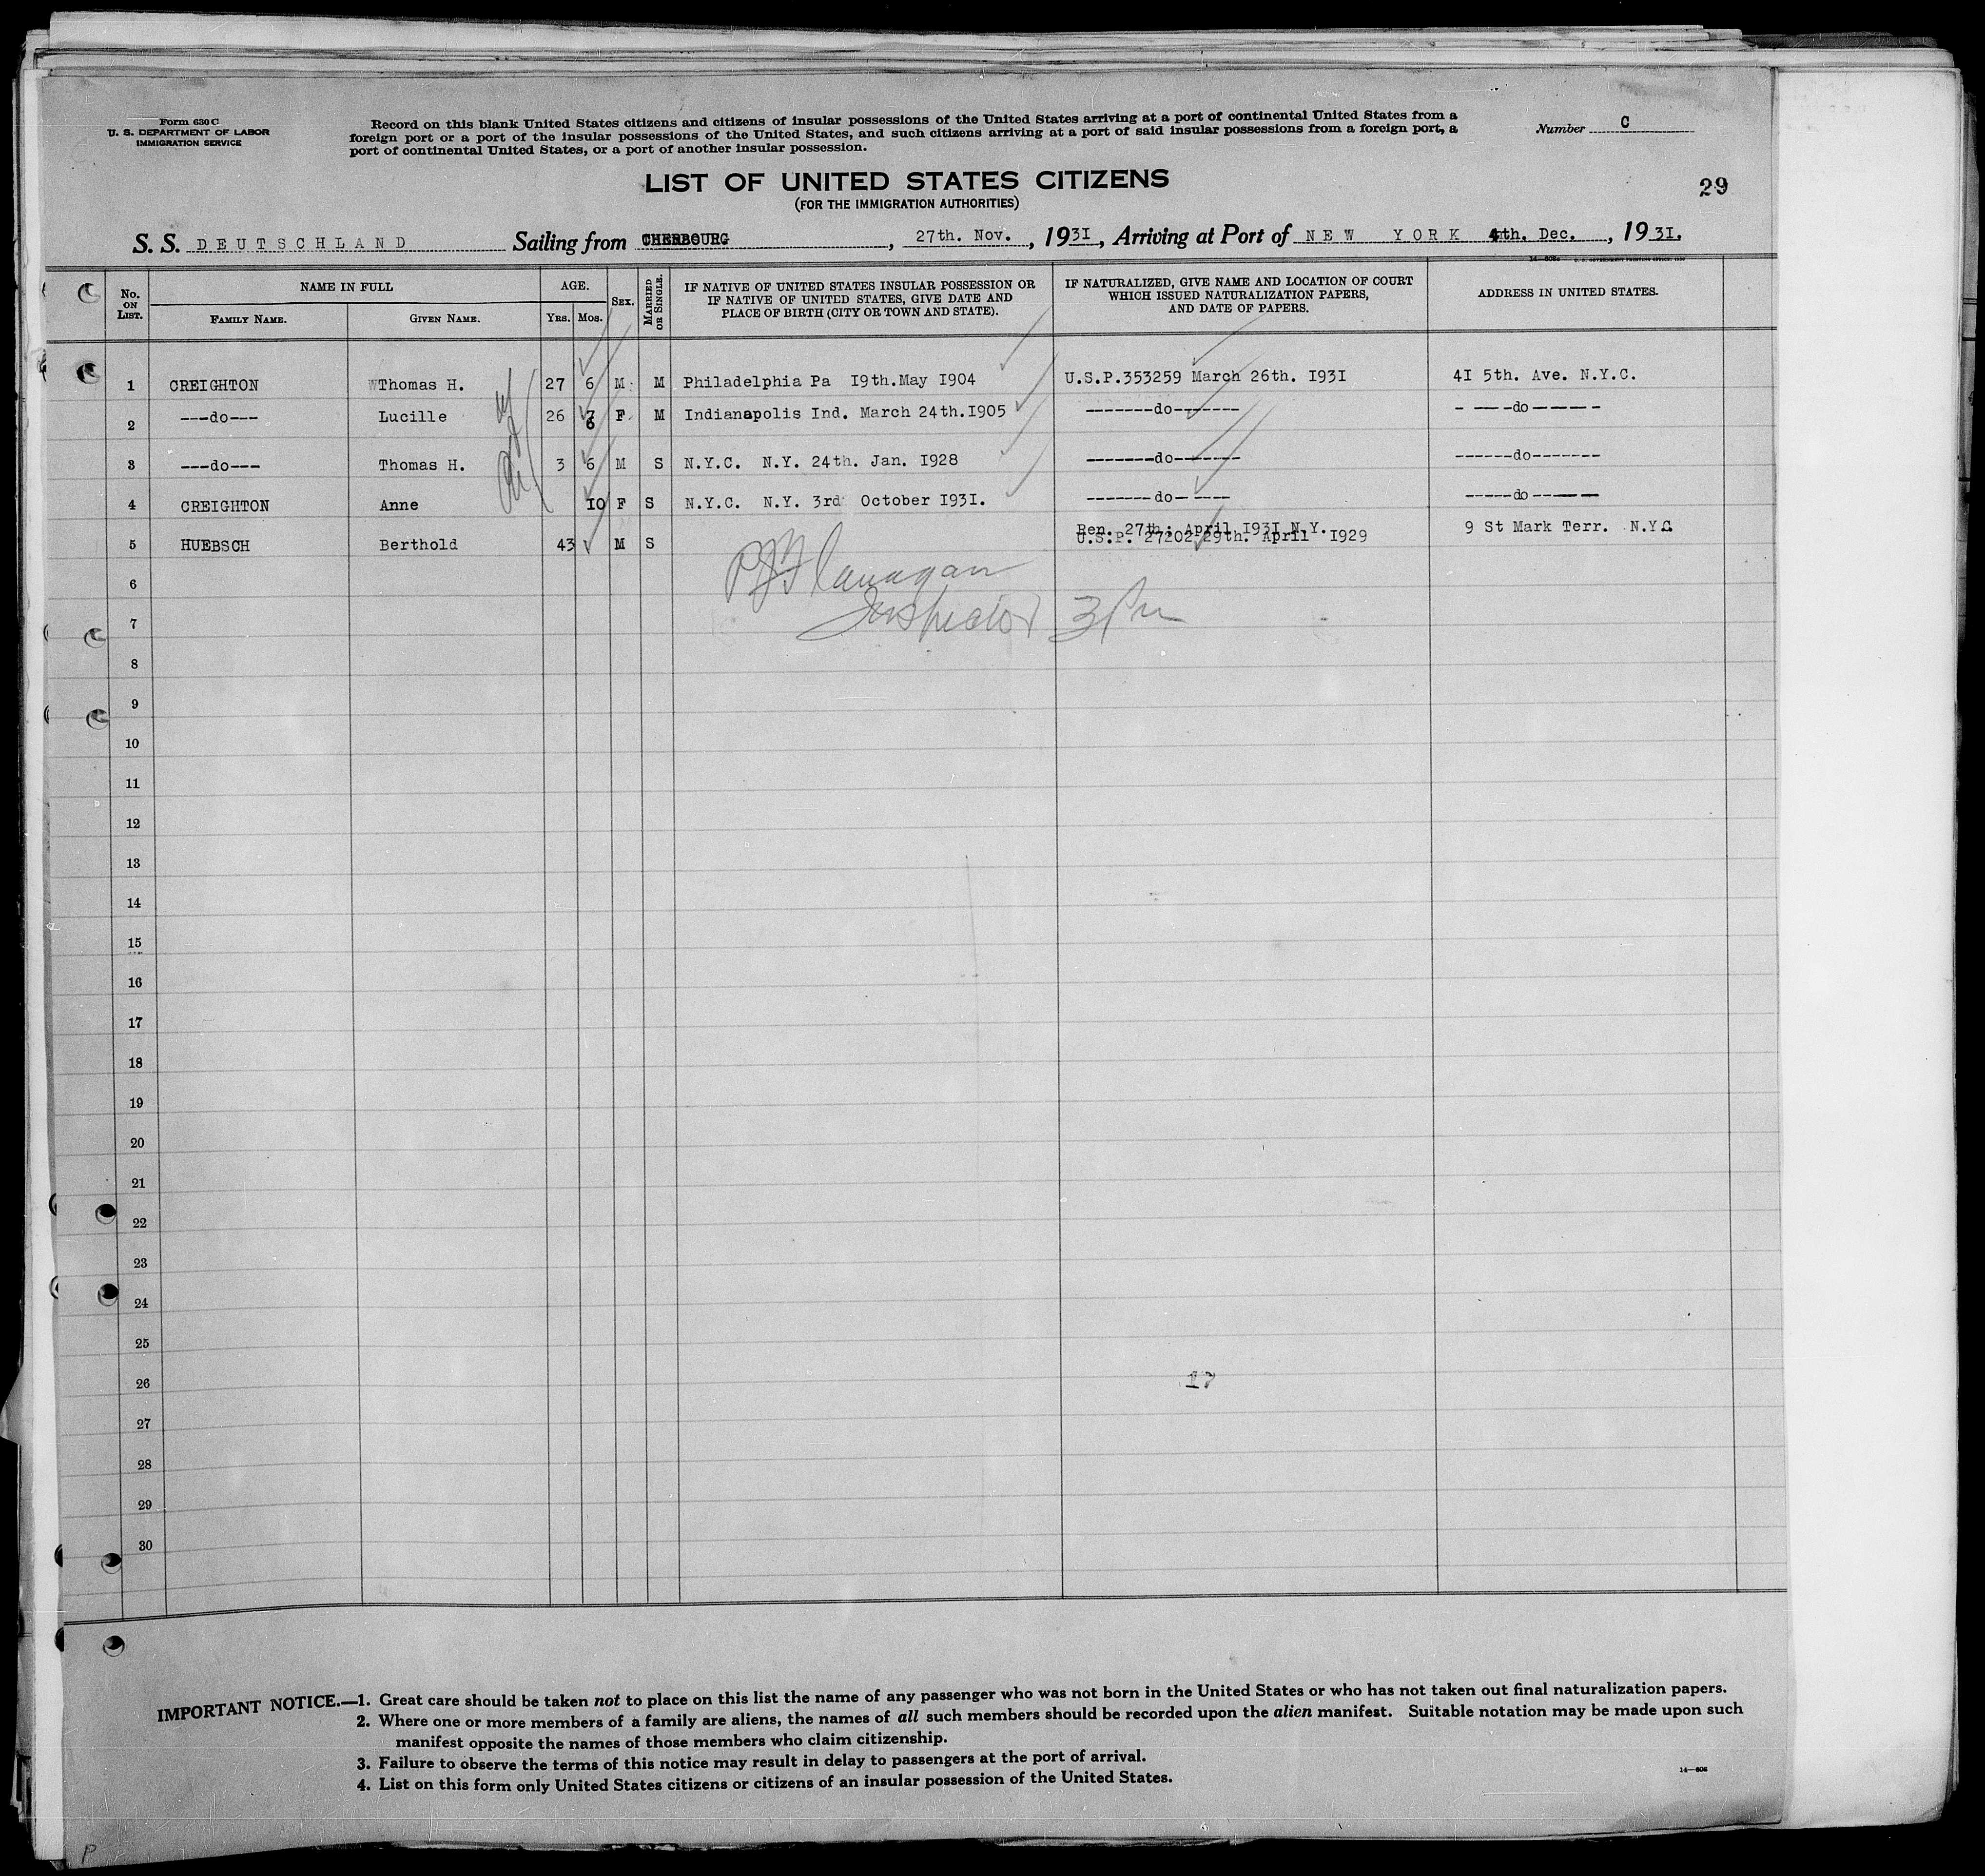 Form 630 C
U. S. DEPARTMENT OF LABOR
IMMIGRATION SERVICE
Record on this blank United States citizens and citizens of insular possessions of the United States arriving at a port of continental United States from a
foreign port or a port of the insular possessions of the United States, and such citizens arriving at a port of said insular possessions from a foreign port, a
port of continental United States, or a port of another insular possession.
Number C
LIST OF UNITED STATES CITIZENS
(FOR THE IMMIGRATION AUTHORITIES)
29
S. S. DEUTSCHLAND Sailing from CHERBOURG, 27th. Nov., 1931, Arriving at Port of NEW YORK 4th. Dec., 1931.
No. ON LIST. NAME IN FULL FAMILY NAME. GIVEN NAME. AGE. YRS. MOS. SEX. MARRIED OR SINGLE. IF NATIVE OF UNITED STATES INSULAR POSSESSION OR IF NATIVE OF UNITED STATES, GIVE DATE AND PLACE OF BIRTH (CITY OR TOWN AND STATE). IF NATURALIZED, GIVE NAME AND LOCATION OF COURT WHICH ISSUED NATURALIZATION PAPERS, AND DATE OF PAPERS. ADDRESS IN UNITED STATES.
1 CREIGHTON Thomas H. 27 6 M M Philadelphia Pa I9th.May I904 U.S.P.353259 March 26th. I93I 4I 5th. Ave. N.Y.C.
2 ---do--- Lucille 26 7 6 F M Indianapolis Ind. March 24th.I905 -------do------- - ---do-----
3 ---do--- Thomas H. 3 6 M S N.Y.C. N.Y. 24th. Jan. I928 -------do------- ------do-------
4 CREIGHTON Anne I0 F S N.Y.C. N.Y. 3rd October I93I. -------do----- -----do------
5 HUEBSCH Berthold 43 M S Ren. 27th: April I93I N.Y. 9 St Mark Terr. N.Y.C
U.S.P. 27202 29th. April I929
P J Flanagan
Inspector
6
7
8
9
10
11
12
13
14
15
16
17
18
19
20
21
22
23
24
25
26
17
27
28
29
30
IMPORTANT NOTICE.—1. Great care should be taken not to place on this list the name of any passenger who was not born in the United States or who has not taken out final naturalization papers.
2. Where one or more members of a family are aliens, the names of all such members should be recorded upon the alien manifest. Suitable notation may be made upon such
manifest opposite the names of those members who claim citizenship.
3. Failure to observe the terms of this notice may result in delay to passengers at the port of arrival.
4. List on this form only United States citizens or citizens of an insular possession of the United States.
14—606
P